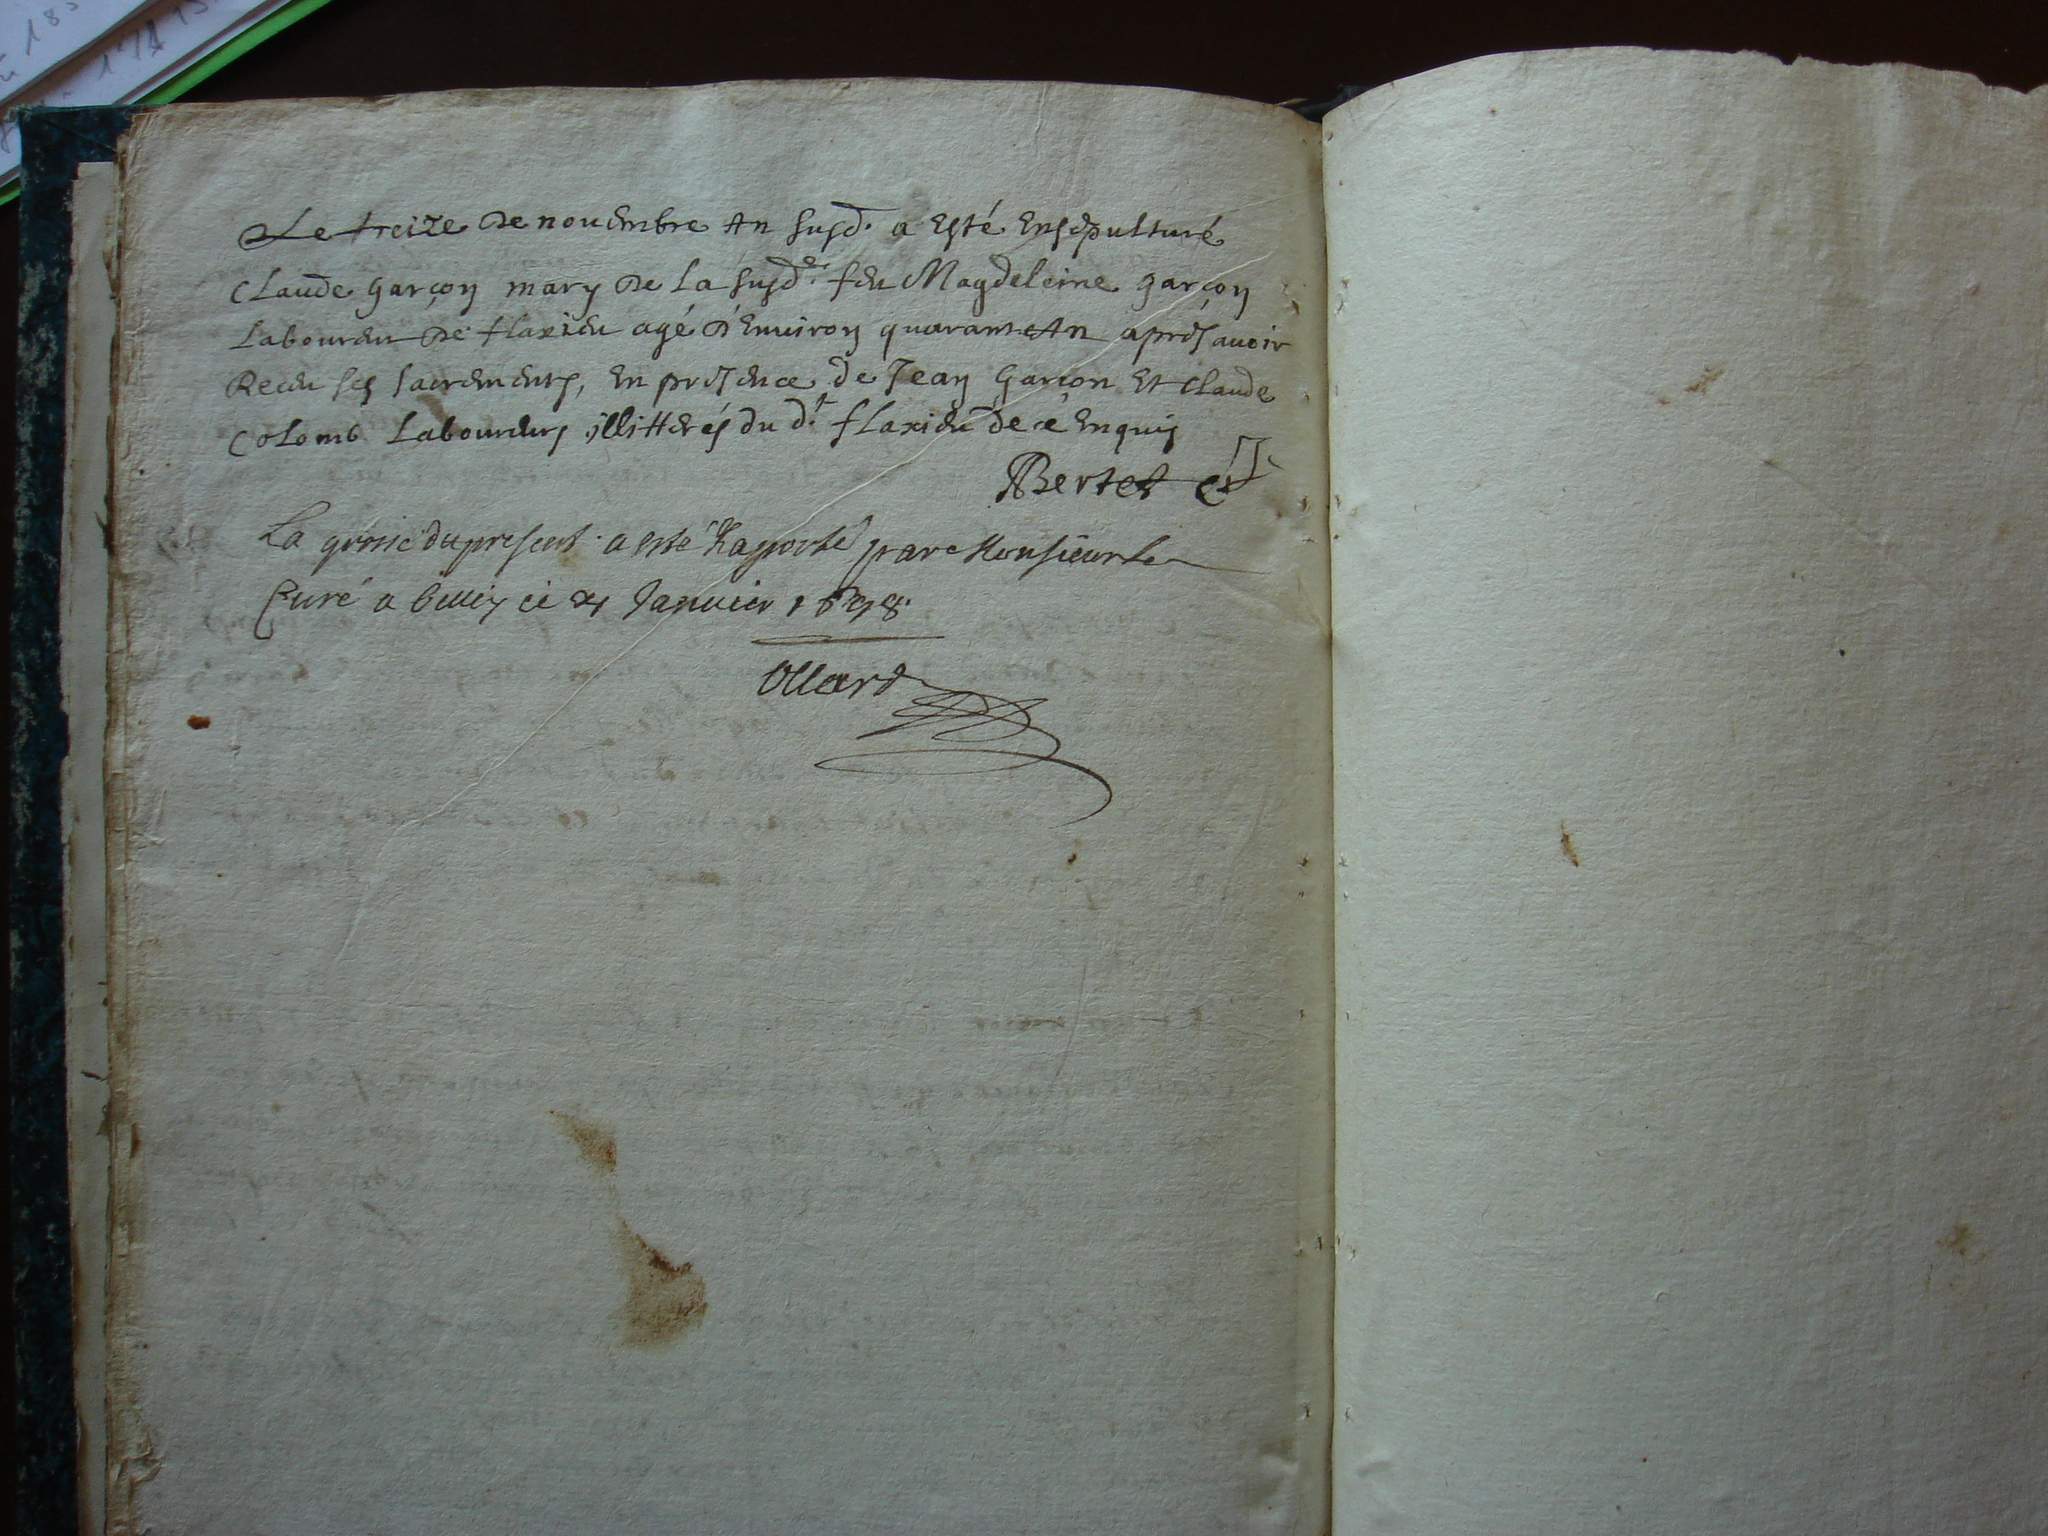 Le treize de novembre An susd. a esté ensepulturé
Claude Garçon mary de la susd.e feu Magdeleine Garçon
Laboureur de flaxieu agé d'Environ quarante An apres avoir
Receu ses sacrements, en presence de Jean Garçon et Claude
Colomb Laboureurs illitterés du d.t flaxieu de ce enquis
Bertet
La grosse du present a esté Raporté par Monsieur le
Curé a belley ce Janvier 1698.
Ollard